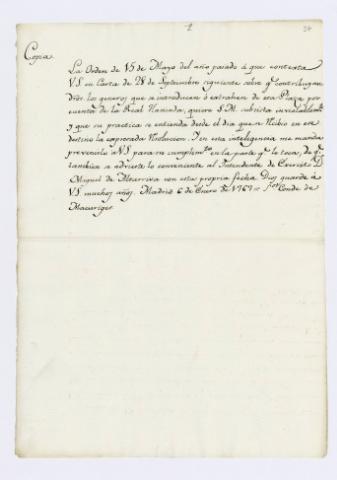 Copia
La Orden de 15 de Mayo del año pasado á que contexta
VS en Carta de 28 de Septiembre siguiente sobre q.e contribuyan
dros. los generos que se introducen ó extrahen de esa Plaza por
cuenta de la Real Hacienda, quiere S.M. subsista inviolablem.te
y que su practica se entienda desde el dia que se recibio en ese
destino la expresada Resolucion. Y en esta inteligencia me manda
prevenirlo á VS para su cumplim.to en la parte q.e le toca, de q.e
tambien se advierte lo conveniente al Intendente de Exercito D.
Miguel de Altarriva con esta propia fecha. Dios guarde á
VS muchos años. Madrid 6 de Enero de 1767 = Conde de